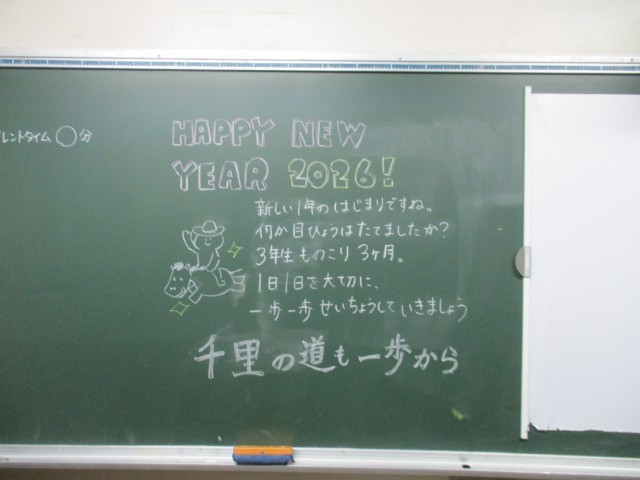 レントタイム〇分
HAPPY NEW
YEAR 2026!
新しい1年のはじまりですね。
何か目ひょうはたてましたか?
3年生ものこり3ヶ月。
1日1日を大切に、
一歩一歩せいちょうしていきましょう
千里の道も一歩から